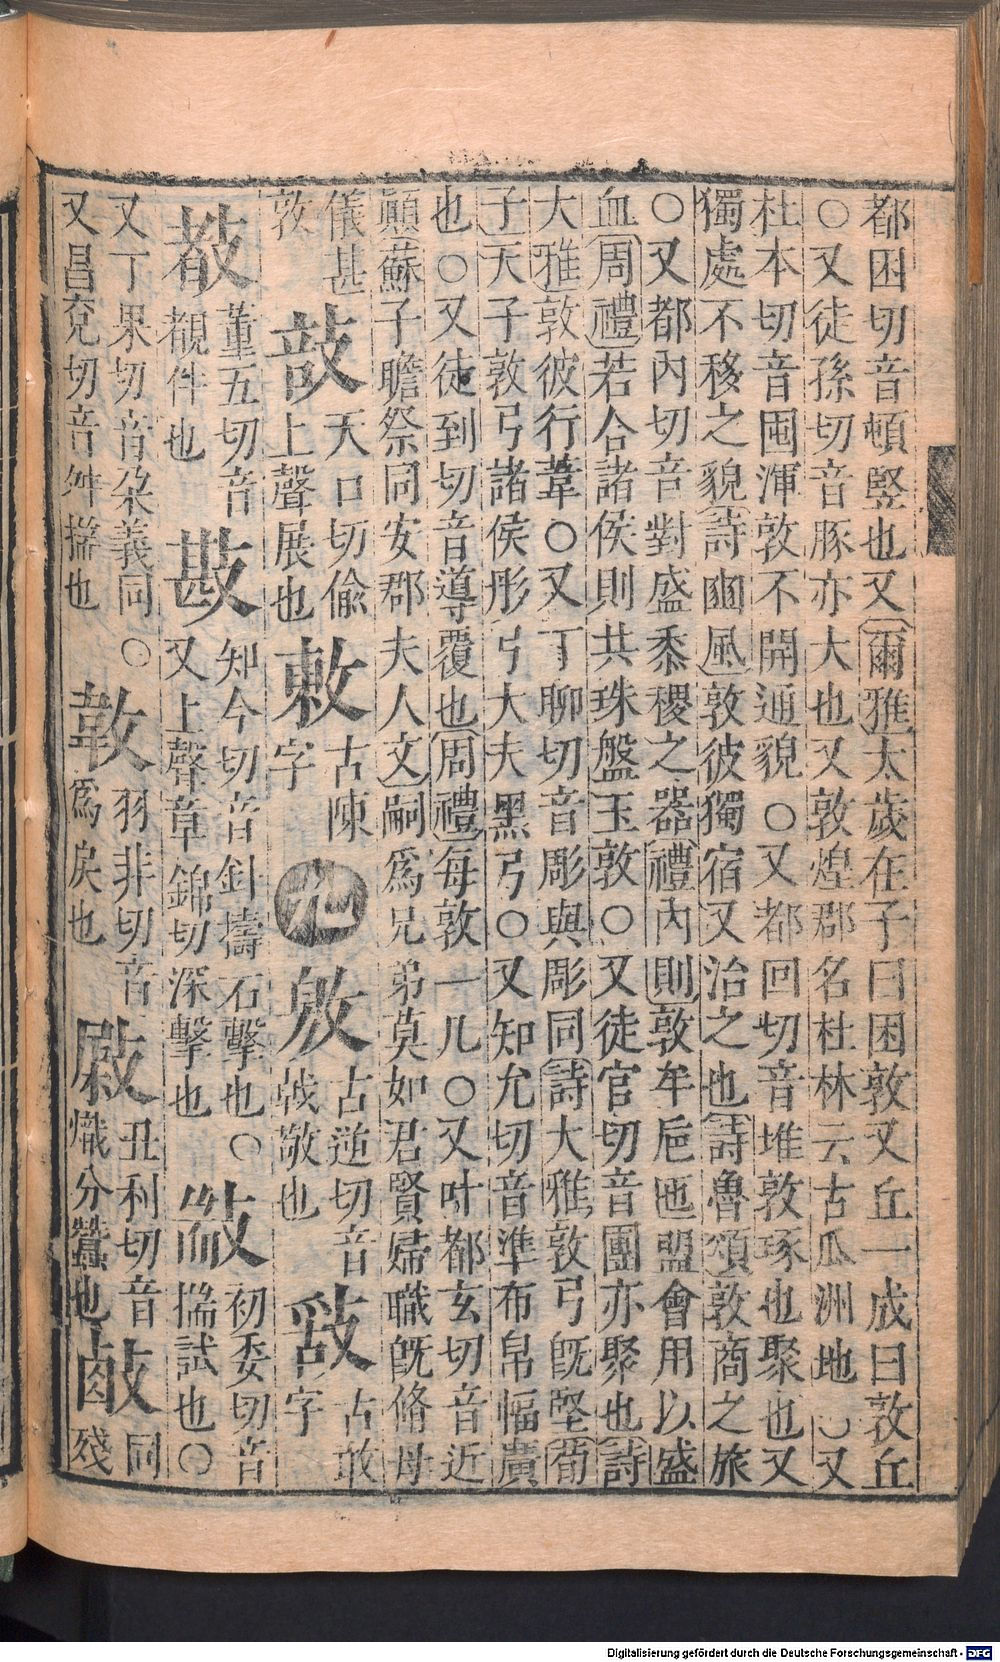 都困切音頓竪也又爾雅太歲在子曰困敦又丘一成曰敦丘
○又徒孫切音豚亦大也又敦煌郡名杜林云古瓜洲地○又
杜本切音囤渾敦不開通貌○又都回切音堆敦琢也聚也又
獨處不移之貌詩豳風敦彼獨宿又治之也詩魯頌敦商之旅
○又都內切音對盛黍稷之器禮內則敦牟巵匜盟會用以盛
血周禮若合諸侯則共珠盤玉敦○又徒官切音團亦聚也詩
大雅敦彼行葦○又丁聊切音彫與彫同詩大雅敦弓旣堅荀
子天子敦弓諸侯彤弓大夫黑弓○又知允切音準布帛幅廣
也○又徒到切音導覆也周禮每敦一几○又叶都玄切音近
顚蘇子瞻祭同安郡夫人文嗣爲兄弟莫如君賢婦職旣脩母
儀甚敦
天口切偷上聲展也
敕 古陳字
古逆切音戟敬也
古敢字
董五切音覩伴也
知今切音針擣石擊也○又上聲章錦切深擊也
初委切音揣試也○又丁果切音朶義同○又昌兗切音舛揣也
羽非切音爲戾也
丑利切音熾分蠶也
同殘
Digitalisierung gefördert durch die Deutsche Forschungsgemeinschaft - DFG